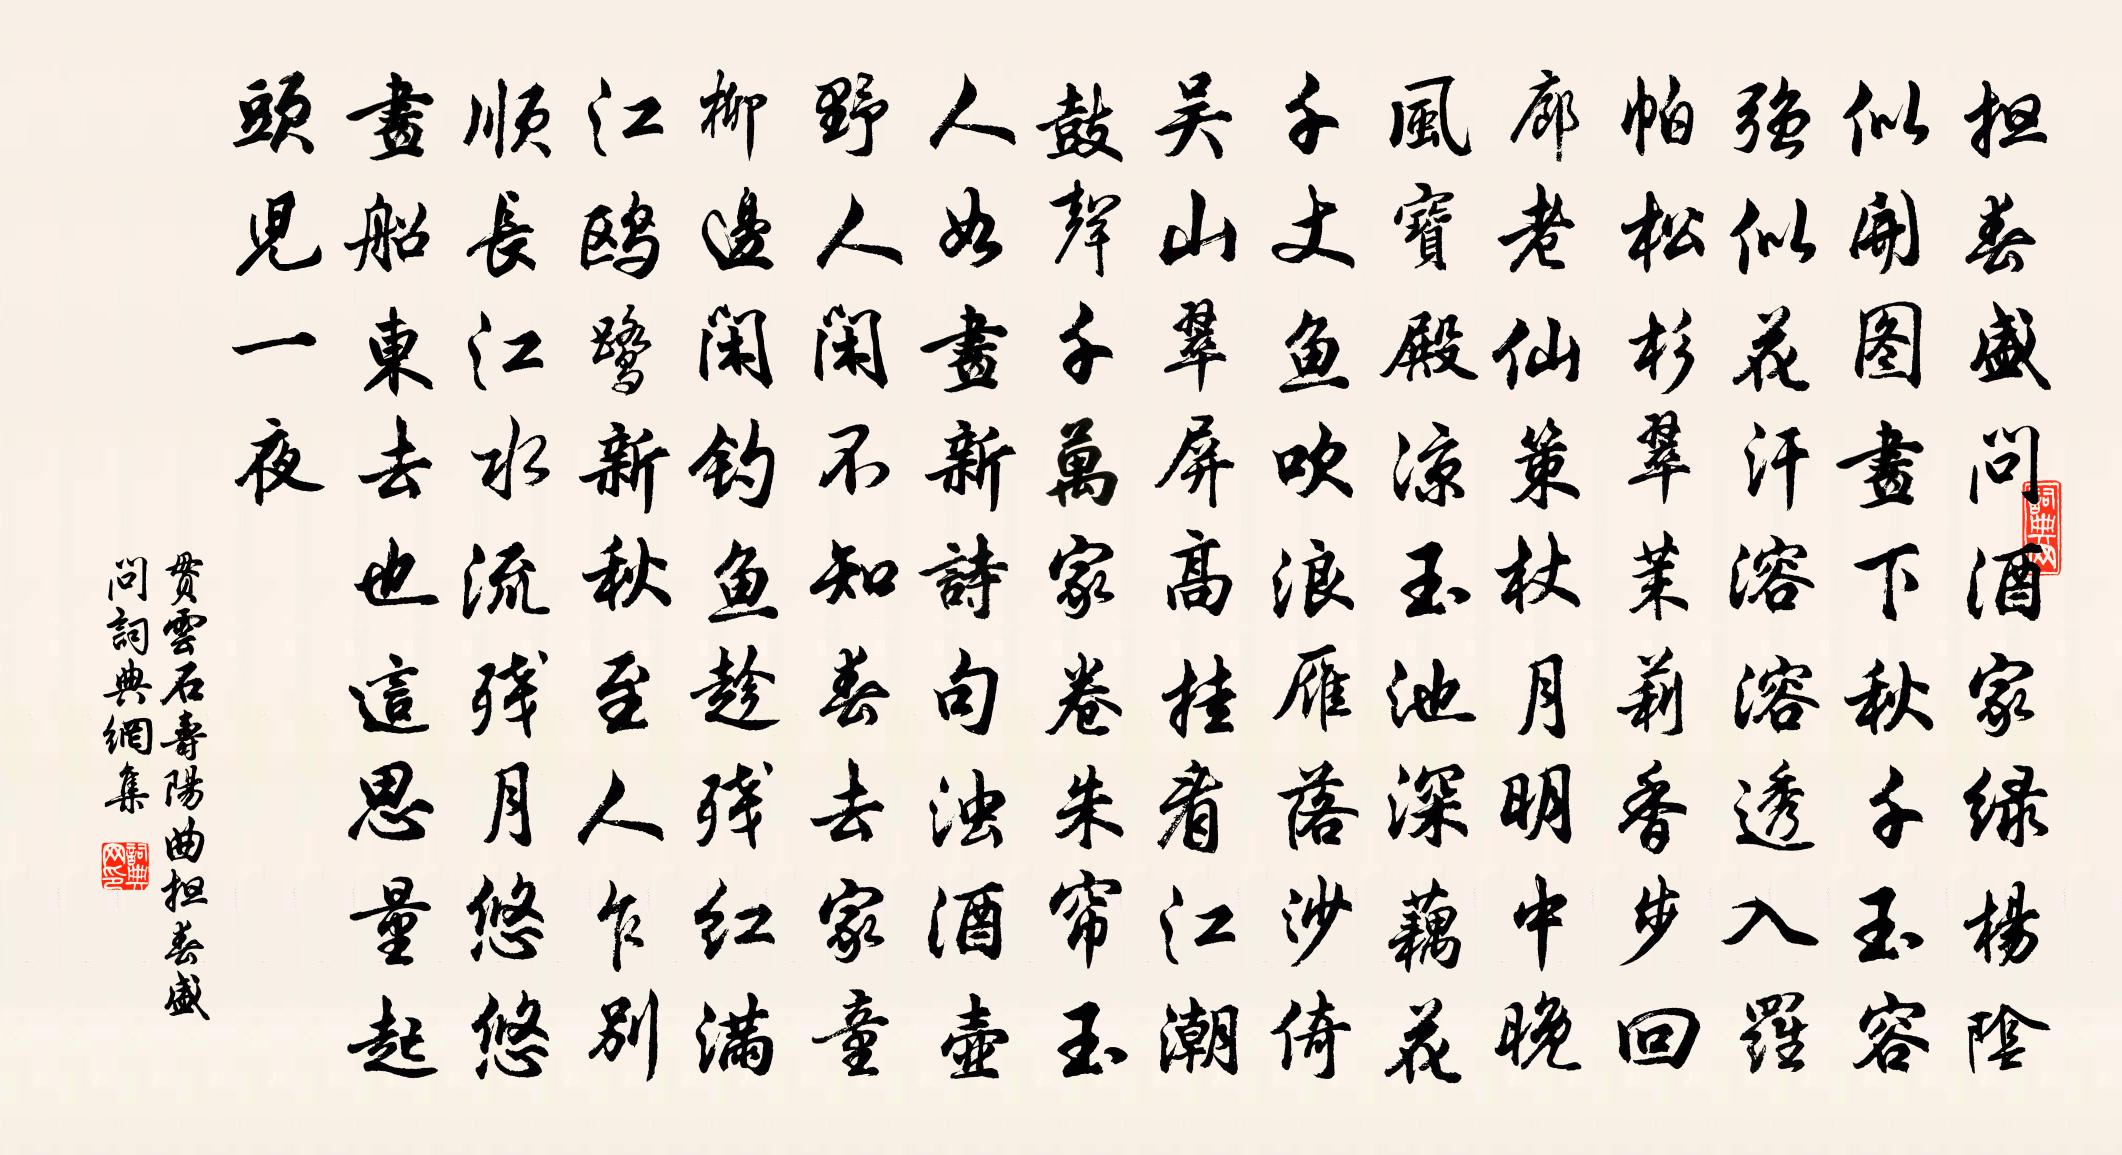 担春盛問酒家绿楊陰
似開图畫下秋千玉容
强似花汗溶溶透入羅
帕松杉翠茉莉香步回
廊老仙策杖月明中晚
風寶殿凉玉池深藕花
千丈魚吹浪雁落沙倚
吴山翠屏高挂看江潮
鼓聲千萬家卷朱帘玉
人如畫新詩句浊酒壶
野人闲不知春去家童
柳邊闲釣魚趁残红满
江鸥鹭新秋至人乍别
順長江水流残月悠悠
畫船東去也這思量起
頭兒一夜
贯雲石壽陽曲担春盛
問詞典網集
詞典网
詞典网印